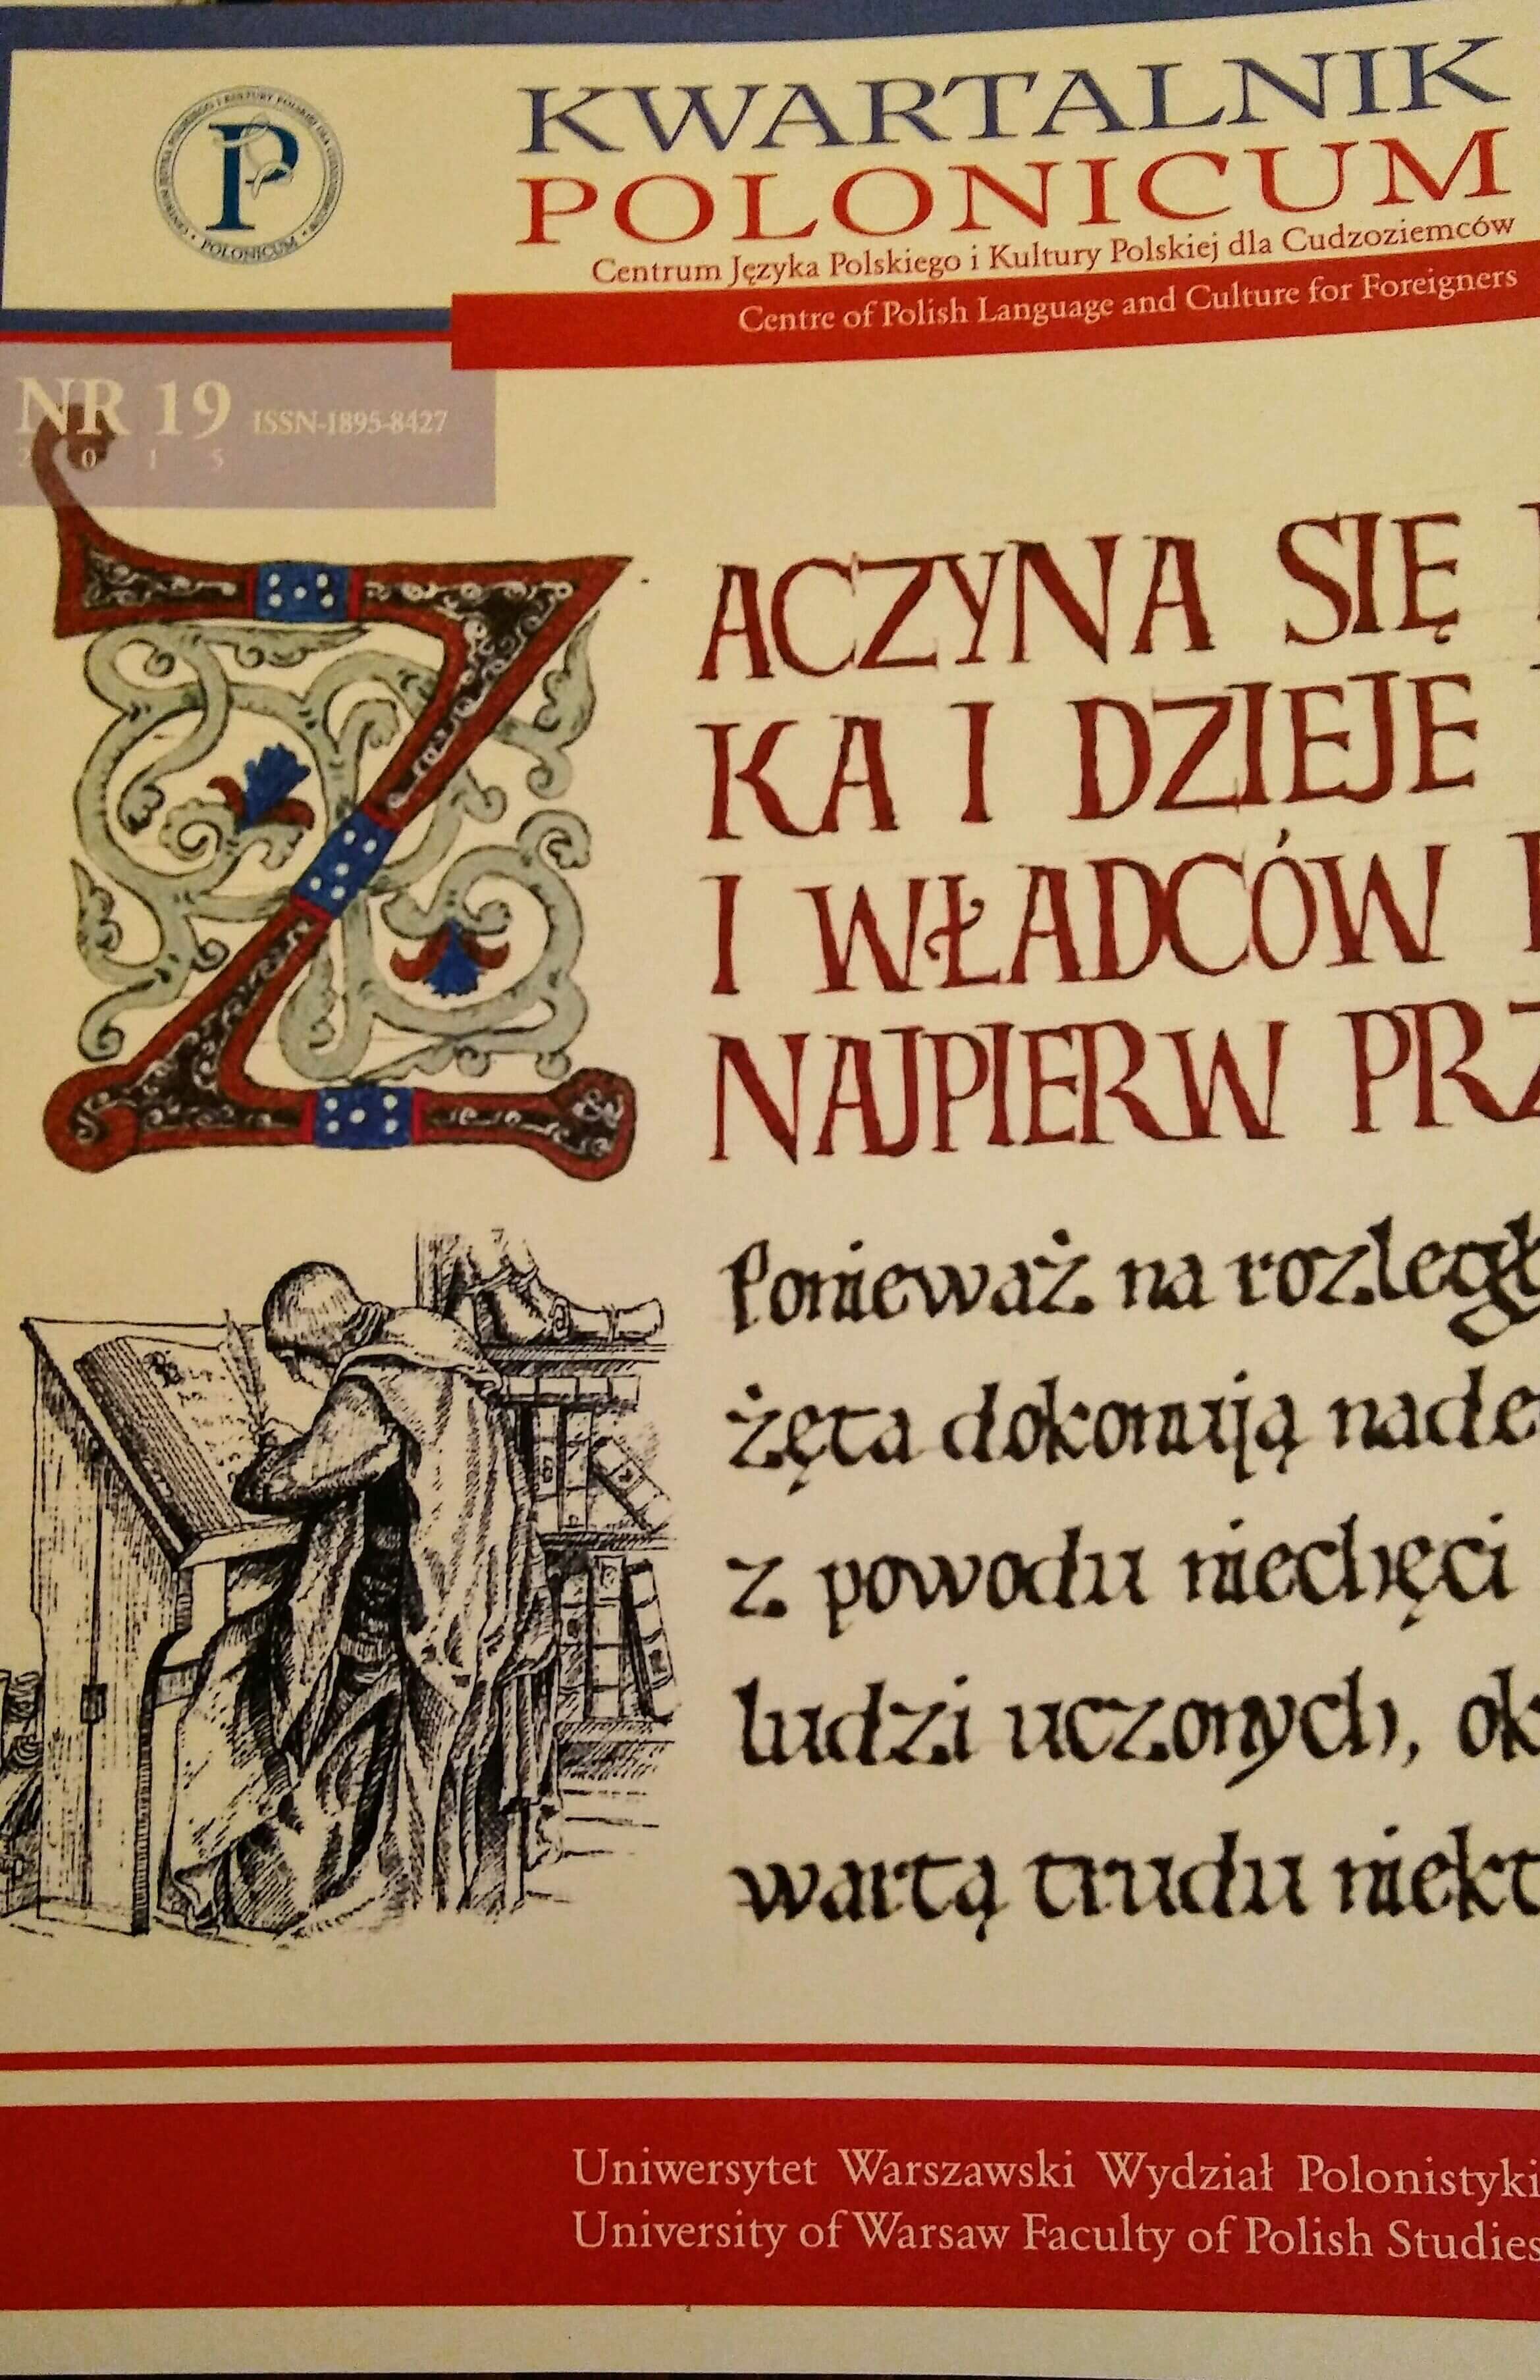 KWARTALNIK
POLONICUM
Centrum Języka Polskiego i Kultury Polskiej dla Cudzoziemców
Centre of Polish Language and Culture for Foreigners
P
CENTRUM JĘZYKA POLSKIEGO I KULTURY POLSKIEJ DLA CUDZOZIEMCÓW
• POLONICUM •
NR 19 ISSN-1895-8427
2 0 1 5
ZACZYNA SIĘ
KA I DZIEJE
I WŁADCÓW
NAJPIERW PRZ
Ponieważ na rozległ
żęta dokonują nade
z powodu niechęci
ludzi uczonych, ok
wartą trudu niekt
Uniwersytet Warszawski Wydział Polonistyki
University of Warsaw Faculty of Polish Studies